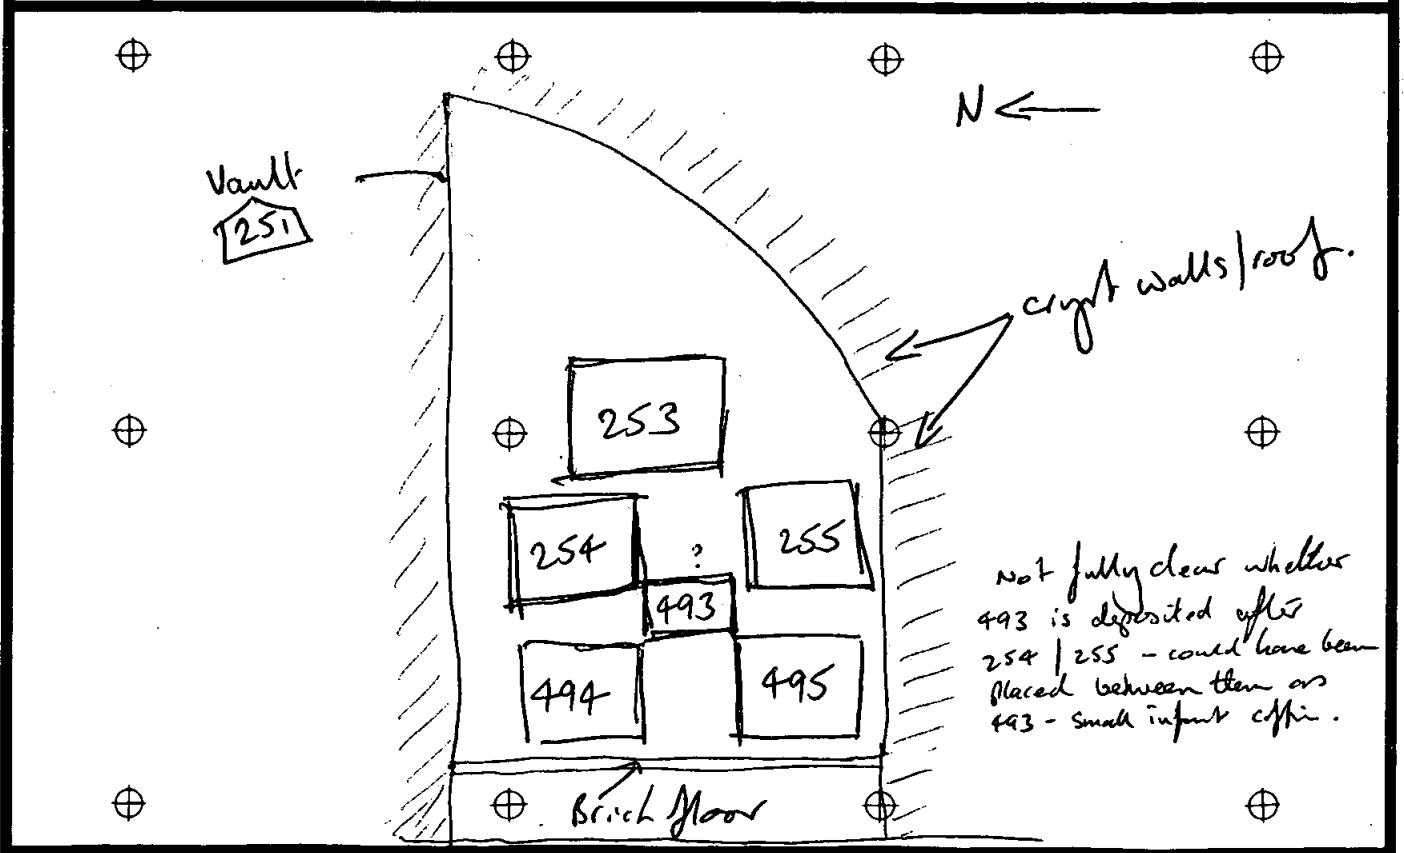 N
Vault
251
crypt walls/roof.
253
254
255
?
493
Not fully clear whether
493 is deposited after
254/255 - could have been
placed between them as
493 - small infant coffin.
494
495
Brick floor